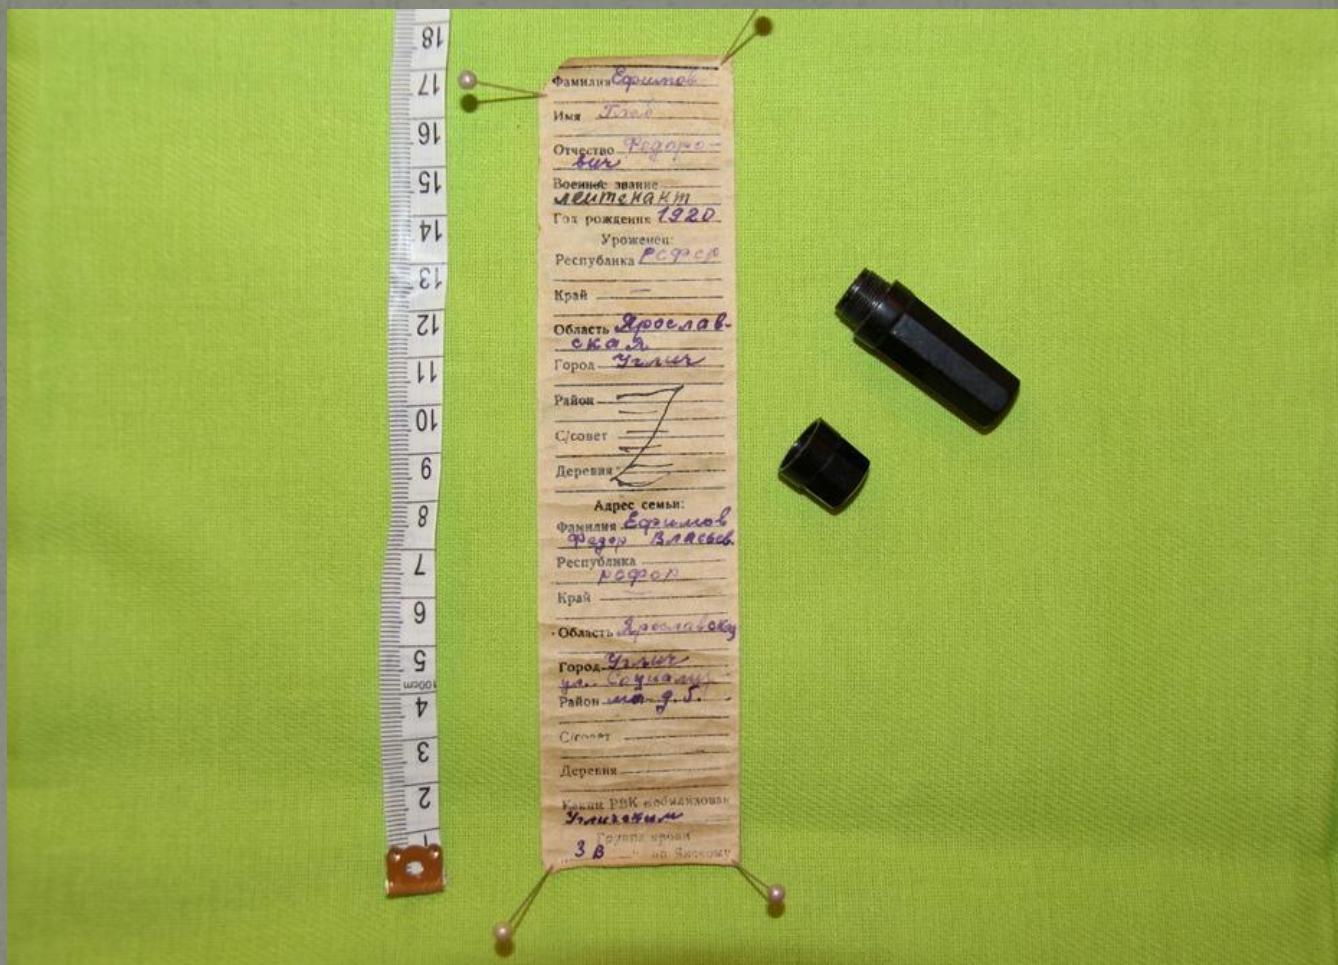 Фамилия Ефимов
Имя Глеб
Отчество Федоро-
вич
Военное звание
лейтенант
Год рождения 1920
Уроженец:
Республика РСФСР
Край —
Область Ярослав-
ская
Город Углич
Район
С/совет
Деревня
Адрес семьи:
Фамилия Ефимов
Федор Власьев.
Республика
РСФСР
Край —
Область Ярославская
Город Углич
ул. Социализ
Район ма д. 5.
С/совет
Деревня
Каким РВК мобилизован
Угличским
Группа крови
3 В по Янскому
18
17
16
15
14
13
12
11
10
9
8
7
6
5
100cm
4
3
2
1